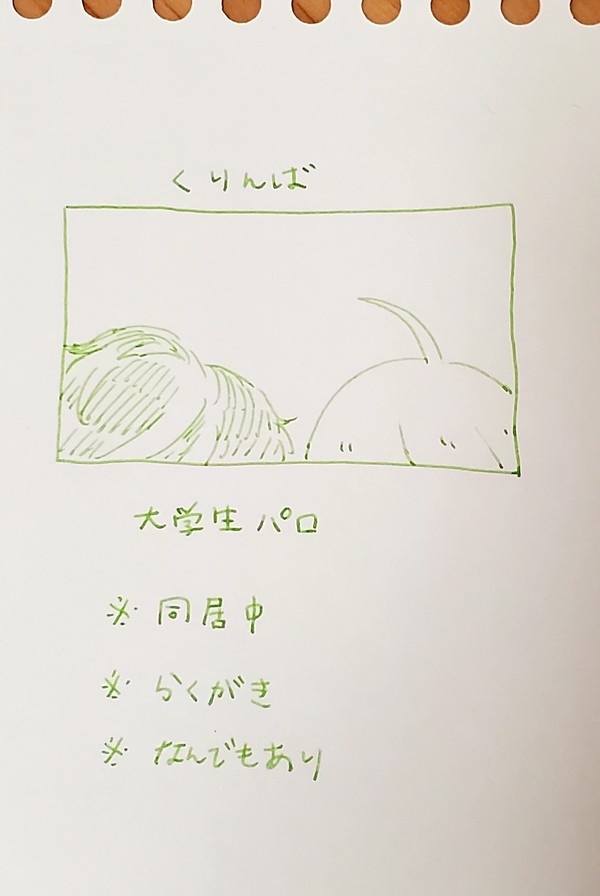 くりんば
大学生パロ
※ 同居中
※ らくがき
※ なんでもあり